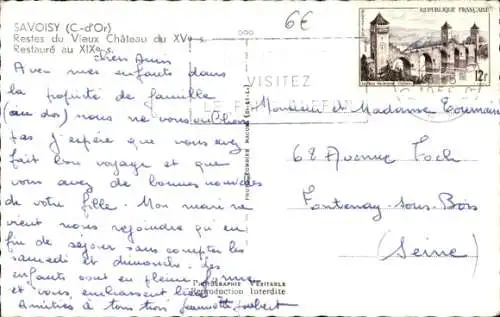 SAVOISY (C-d'Or)
Restes du Vieux Château du XVe s.
Restauré au XIXe s.
6€
chers amis
Avec mes enfants dans
la propriété de famille
(au dos) nous ne vous oublions
pas j'espère que vous avez
fait bon voyage et que
vous avez de bonnes nouvelles
de votre fille. Mon mari ne
vient nous rejoindre qu'en
fin de séjour sans compter les
samedi et dimanche. Les
enfants sont en pleine forme
et vous embrassent bien
Amitiés à tous trois Jeannette
VISITEZ
REPUBLIQUE FRANÇAISE
12f
Monsieur et Madame
68 Avenue Foch
Fontenay-sous-Bois
(Seine)
PHOTOGRAPHIE VÉRITABLE
Reproduction Interdite